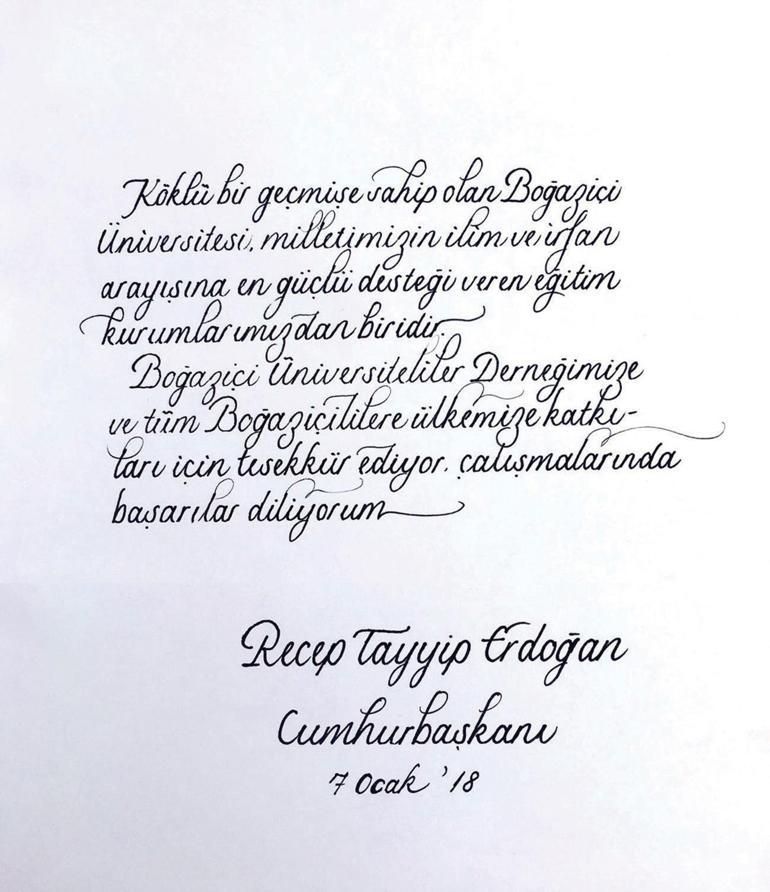 Köklü bir geçmişe sahip olan Boğaziçi
Üniversitesi, milletimizin ilim ve irfan
arayışına en güçlü desteği veren eğitim
kurumlarımızdan biridir.
Boğaziçi Üniversiteliler Derneğimize
ve tüm Boğaziçililere ülkemize katkı-
ları için teşekkür ediyor, çalışmalarında
başarılar diliyorum
Recep Tayyip Erdoğan
Cumhurbaşkanı
7 Ocak '18